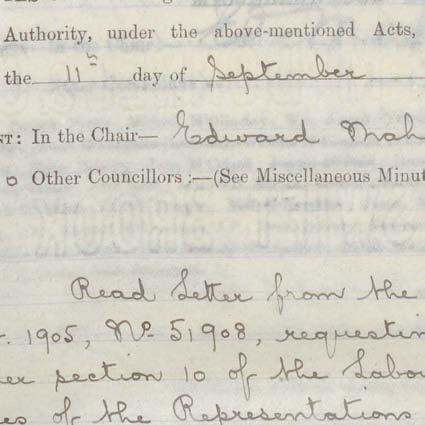 Authority, under the above-mentioned Acts,
the 11th day of September
NT: In the Chair— Edward Mah
Other Councillors:—(See Miscellaneous Minut
Read Letter from the
. 1905, No 51908, requestin
er section 10 of the Labo
es of the Representations